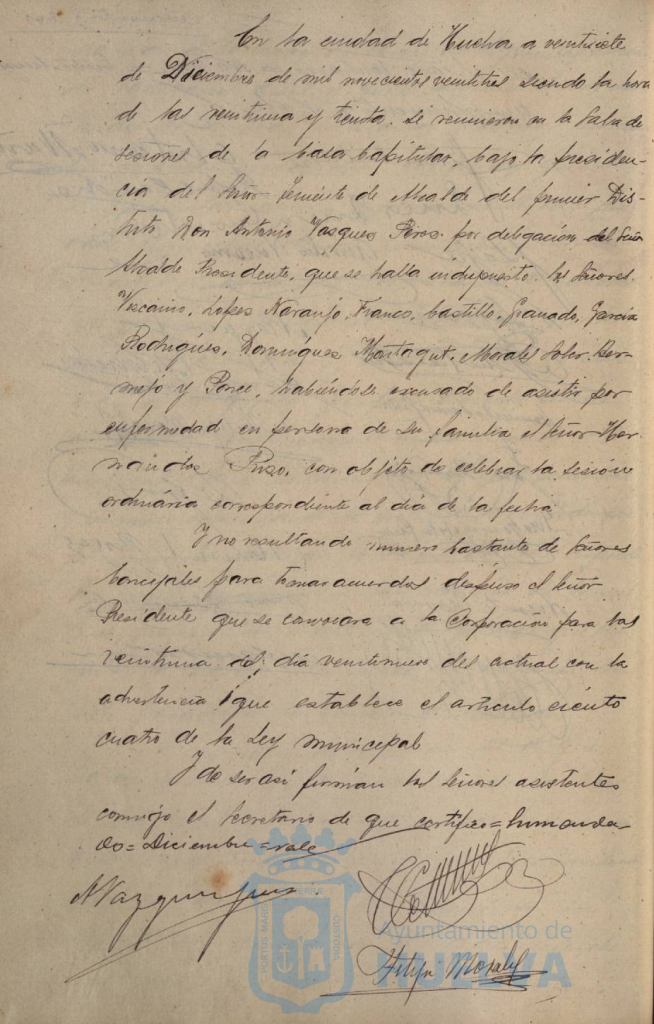 En la ciudad de Huelva a veintisiete
de Diciembre de mil novecientos veintitres siendo la hora
de las veintiuna y treinta. Se reunieron en la Sala de
sesiones de la Casa Capitular, bajo la presiden-
cia del Señor Teniente de Alcalde del primer Dis-
trito Don Antonio Vazques Peres por delegación del Señor
Alcalde Presidente, que se halla indispuesto. los Señores.
Vizcaino, Lopes Naranjo, Franco, Castillo, Granado, García
Rodrigués, Domingués Montagut, Morales Soler, Ber-
mejo y Ponce, habiéndose excusado de asistir por
enfermedad en persona de su familia el Señor Her-
nándos Pozo, con objeto de celebrar la sesión
ordinária correspondiente al día de la fecha
Y no resultando numero bastante de Señores
Concejales para tomar acuerdos dispuso el Señor
Presidente que se convocara a la Corporación para las
veintiuna del día veintinueve del actual con la
advertencia que establece el artículo ciento
cuatro de la Ley municipal
Y de ser así firman los señores asistentes
conmigo el Secretario de que certifico=
do=Diciembre=vale
A Vazquez
Felipe Morales
Ayuntamiento de
HUELVA